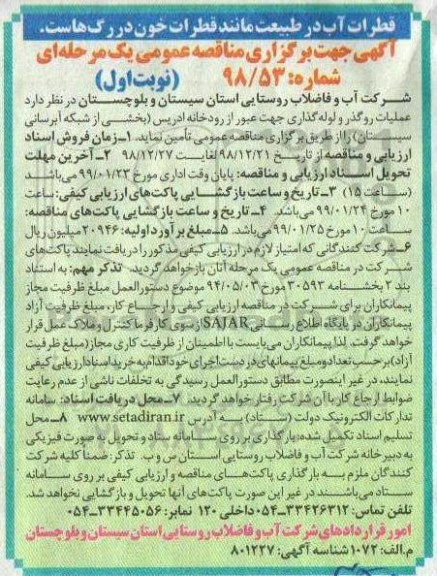 قطرات آب در طبیعت مانند قطرات خون در رگ هاست.
آگهی جهت برگزاری مناقصه عمومی یک مرحله ای
شماره: ۹۸/۵۳ (نوبت اول)
شرکت آب و فاضلاب روستایی استان سیستان و بلوچستان در نظر دارد
عملیات روگذر و لوله گذاری جهت عبور از رودخانه ادریس (بخشی از شبکه آبرسانی
سیستان) را از طریق برگزاری مناقصه عمومی تأمین نماید. ۱-زمان فروش اسناد
ارزیابی و مناقصه از تاریخ ۹۸/۱۲/۲۱ لغایت ۹۸/۱۲/۲۷ ۲-آخرین مهلت
تحویل اسناد ارزیابی و مناقصه: پایان وقت اداری مورخ ۹۹/۰۱/۲۳ می باشد
(ساعت ۱۵) ۳-تاریخ و ساعت بازگشایی پاکت های ارزیابی کیفی: ساعت
۱۰ مورخ ۹۹/۰۱/۲۴ می باشد. ۴-تاریخ و ساعت بازگشایی پاکت های مناقصه:
ساعت ۱۰ مورخ ۹۹/۰۱/۲۵ می باشد. ۵-مبلغ برآورد اولیه: ۲۰۹۴۶ میلیون ریال
۶-شرکت کنندگانی که امتیاز لازم در ارزیابی کیفی مذکور را دریافت نمایند پاکت های
شرکت در مناقصه عمومی یک مرحله آنان باز خواهد گردید. تذکر مهم: به استناد
بند ۲ بخشنامه ۳۰۵۹۳ مورخ ۹۴/۰۵/۰۳ موضوع دستورالعمل مبلغ ظرفیت مجاز
پیمانکاران برای شرکت در مناقصه ارزیابی کیفی و ارجاع کار، مبلغ ظرفیت آزاد
پیمانکاران در پایگاه اطلاع رسانی SAJAR از سوی کارفرما کنترل و ملاک عمل قرار
خواهد گرفت. لذا پیمانکاران می بایست با اطمینان از ظرفیت کاری مجاز (مبلغ ظرفیت
آزاد) بر حسب تعداد و مبلغ پیمانهای در دست اجرای خود اقدام به خرید اسناد ارزیابی کیفی
نمایند، در غیر اینصورت مطابق دستورالعمل رسیدگی به تخلفات ناشی از عدم رعایت
ضوابط ارجاع کار با آن شرکت رفتار خواهد گردید. ۷-محل دریافت اسناد: سامانه
تدارکات الکترونیک دولت (ستاد) به آدرس www.setadiran.ir ۸-محل
تسلیم اسناد تکمیل شده: بارگذاری بر روی سامانه ستاد و تحویل به صورت فیزیکی
به دبیرخانه شرکت آب و فاضلاب روستایی استان س و ب. تذکر: ضمناً کلیه شرکت
کنندگان ملزم به بارگذاری پاکت های مناقصه و ارزیابی کیفی بر روی سامانه
ستاد می باشند در غیر این صورت پاکت های آنها تحویل و بازگشایی نخواهد شد.
تلفن تماس: ۳۳۴۲۶۳۱۲-۰۵۴ داخلی ۱۲۰ نمابر: ۳۳۴۴۵۰۵۶-۰۵۴
امور قراردادهای شرکت آب و فاضلاب روستایی استان سیستان و بلوچستان
م.الف: ۱۰۷۲ شناسه آگهی: ۸۰۱۲۲۷